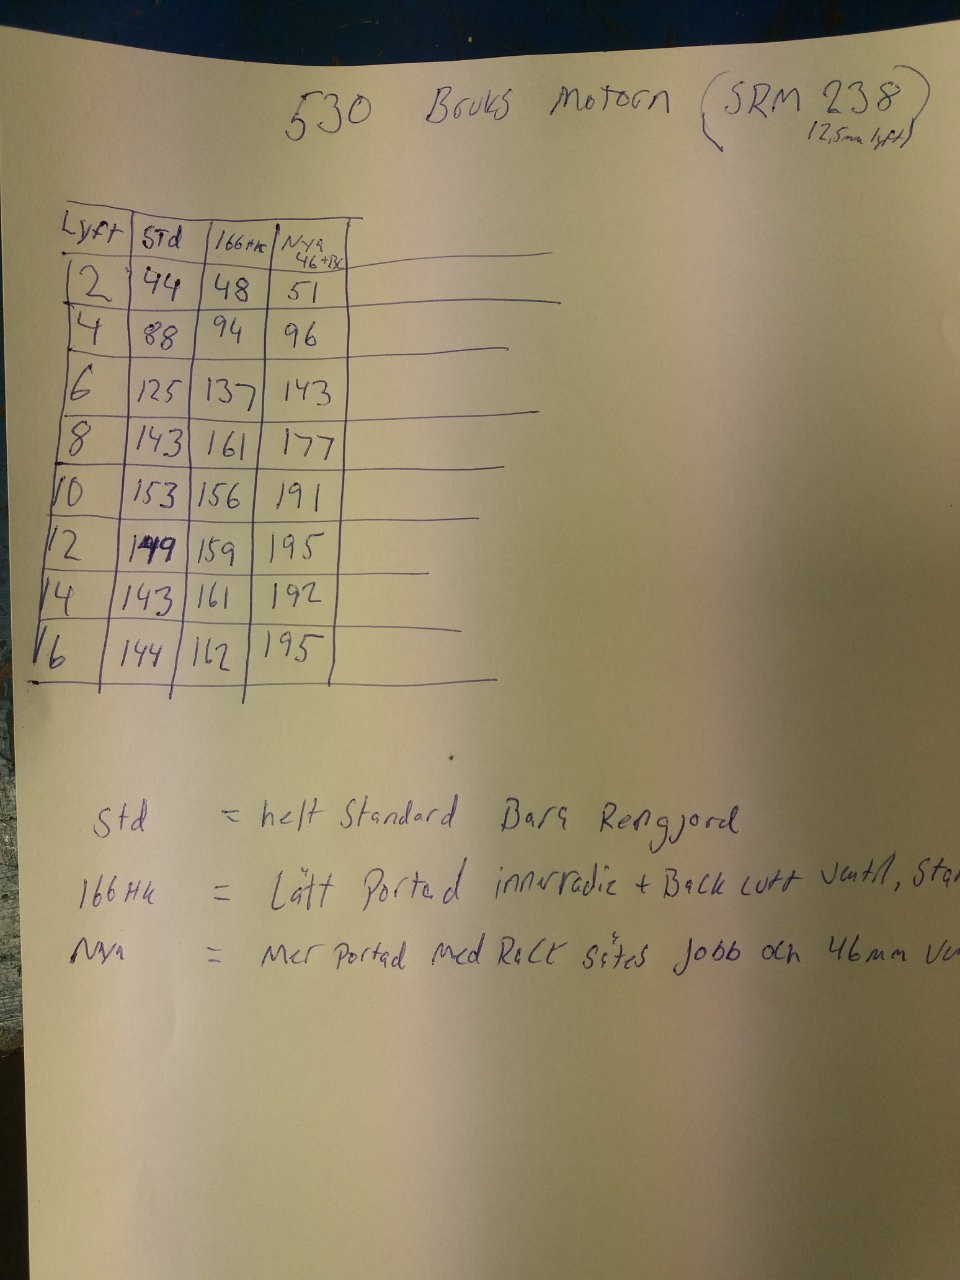 530 Bruks motorn (SRM 238)
12,5mm lyft
Lyft STD 166HK Nya
2 44 48 51
4 88 94 96
6 125 137 143
8 143 161 177
10 153 156 191
12 149 159 195
14 143 161 192
16 144 162 195
Std = helt Standard Bara Rengjord
166HK = Lätt Portad innerradie + Back cutt ventl, Stan
= mer portad med Race sätes jobb och 46mm